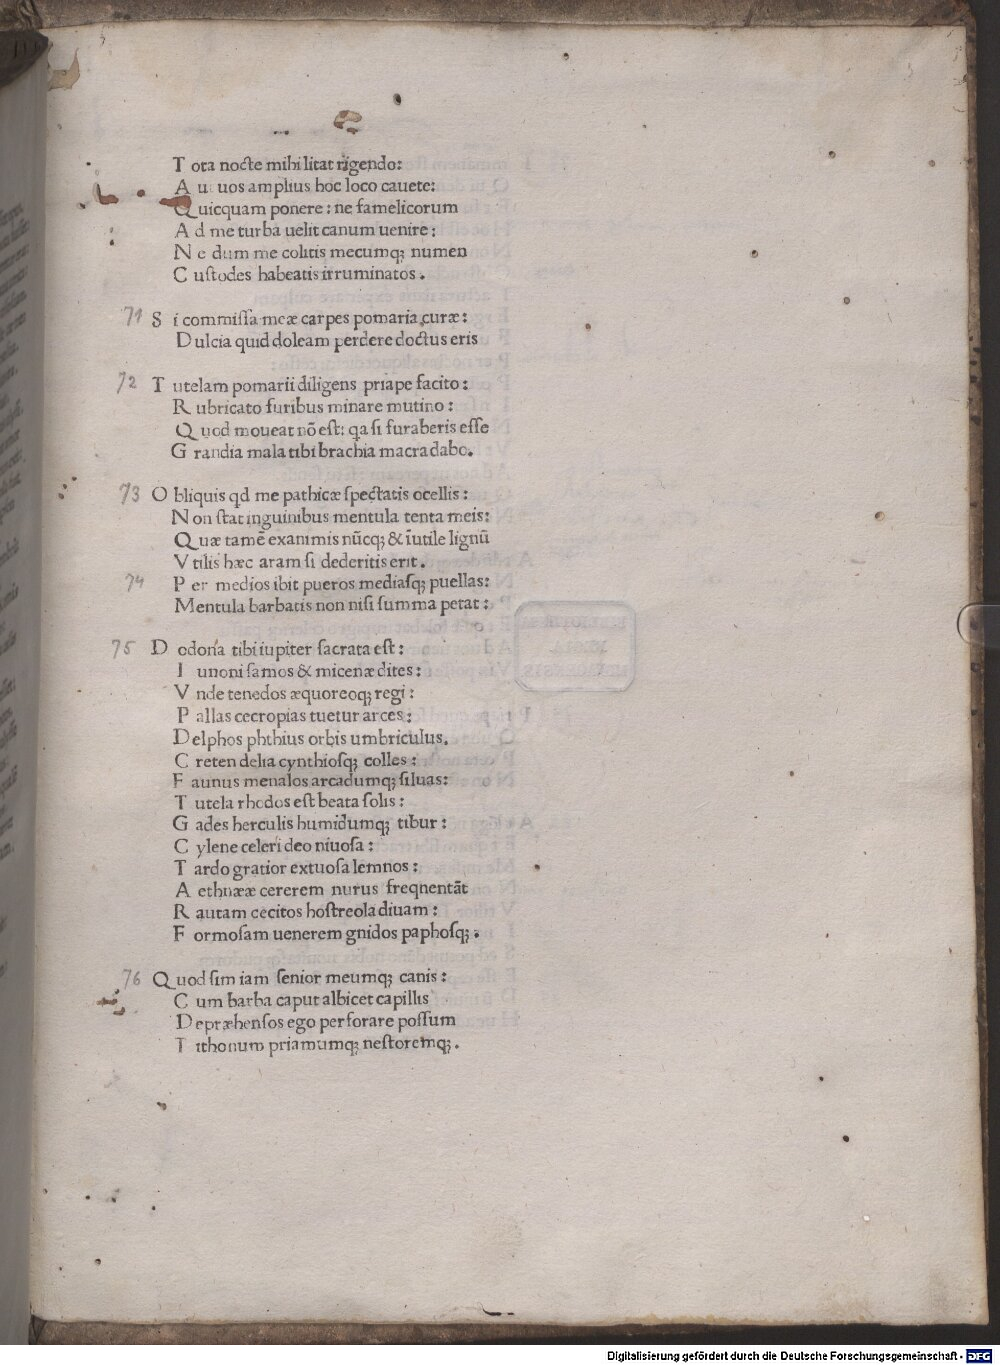 T ota nocte mihi litat rigendo:
A u uos amplius hoc loco cauete:
Quicquam ponere: ne famelicorum
A d me turba uelit canum uenire:
N e dum me colitis mecumq; numen
C ustodes habeatis irruminatos.
71 S i commissa meæ carpes pomaria curæ:
D ulcia quid doleam perdere doctus eris
72 T utelam pomarii diligens priape facito:
R ubricato furibus minare mutino:
Q uod moueat nõ est: qa si furaberis esse
G randia mala tibi brachia macra dabo.
73 O bliquis qd me pathicæ spectatis ocellis:
N on stat inguinibus mentula tenta meis:
Q uæ tamẽ exanimis nũcq; & ĩutile lignũ
V tilis hæc aram si dederitis erit.
74 P er medios ibit pueros mediasq; puellas:
Mentula barbatis non nisi summa petat:
75 D odona tibi iupiter sacrata est:
I unoni samos & micenæ dites:
V nde tenedos æquoreoq; regi:
P allas cecropias tuetur arces:
Delphos phthius orbis umbriculus.
C reten delia cynthiosq; colles:
F aunus menalos arcadumq; siluas:
T utela rhodos est beata solis:
G ades herculis humidumq; tibur:
C ylene celeri deo niuosa:
T ardo gratior extuosa lemnos:
A ethnææ cererem nurus freqnentãt
R autam cecitos hostreola diuam:
F ormosam uenerem gnidos paphosq;.
76 Quod sim iam senior meumq; canis:
C um barba caput albicet capillis
Depræhensos ego perforare possum
T ithonum priamumq; nestoremq;.
Digitalisierung gefördert durch die Deutsche Forschungsgemeinschaft - DFG